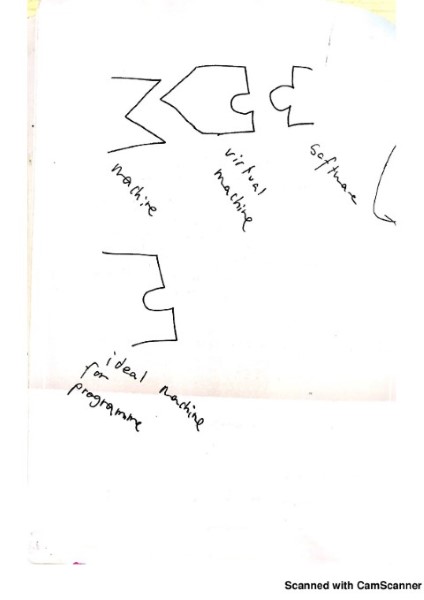 machine
virtual
machine
software
ideal machine
for
programme
Scanned with CamScanner